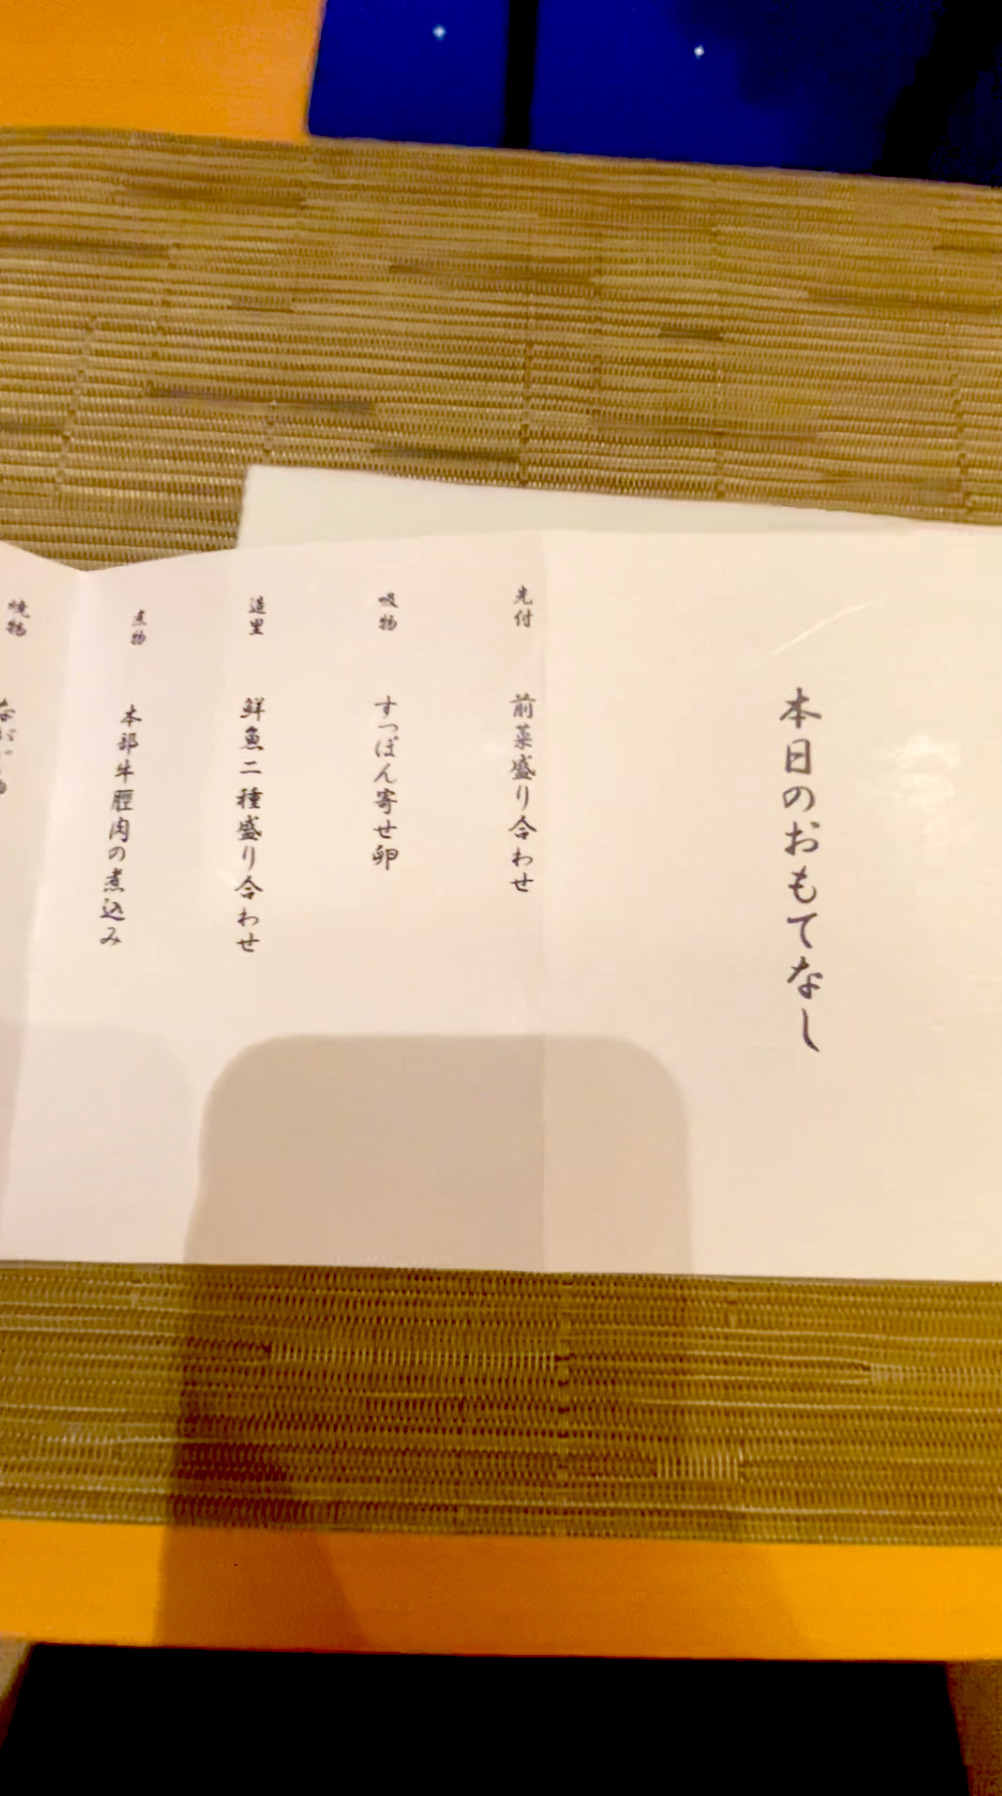 本日のおもてなし
先付
前菜盛り合わせ
吸物
すっぽん寄せ卵
造里
鮮魚二種盛り合わせ
煮物
本部牛脛肉の煮込み
焼物